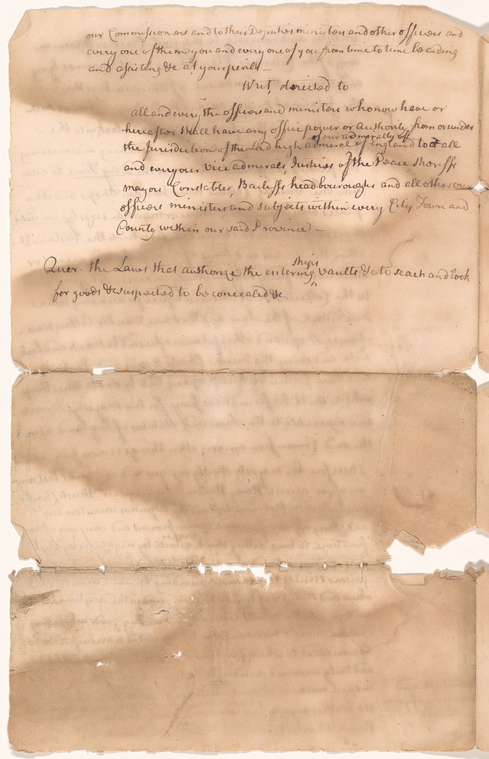 our Commissioners and to their Deputies ministers and other officers and
every one of them you and every one of you from time to time be aiding
and assisting &c at your perils —
Writ directed to
all and every the officers and ministers who now have or
hereafter shall have any office power or Authority from or under
of our admiralty of
the Jurisdiction of the Lord high admiral of England to all
and every our Vice admirals, Justices of the Peace Sheriffs
mayors Constables, Bailiffs headboroughs and all other our
officers ministers and subjects within every City Town and
County within our said Province —
ships
Quer. the Laws that authorize the entering vaults &c to seach and look
for goods &c suspected to be concealed &c